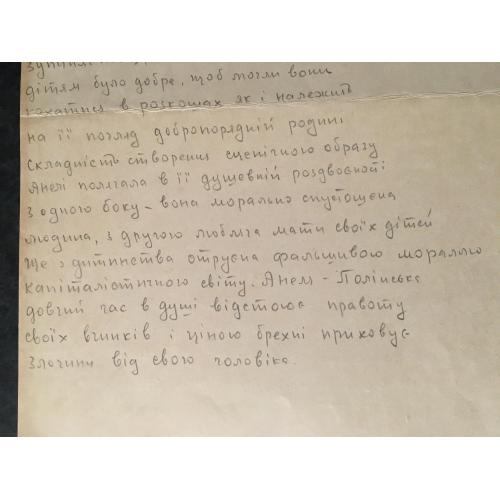 дітям було добре, щоб могли вони
кохатись в розкошах як і належить
на її погляд добропорядній родині
Складність створення сценічного образу
Анелі полягала в її душевній роздвоєності:
з одного боку – вона морально спустошена
людина, з другого любляча мати своїх дітей
Ще з дитинства отруєна фальшивою мораллю
капіталістичного світу. Анеля – Полінська
довгий час в душі відстоює правоту
своїх вчинків і ціною брехні приховує
злочини від свого чоловіка.